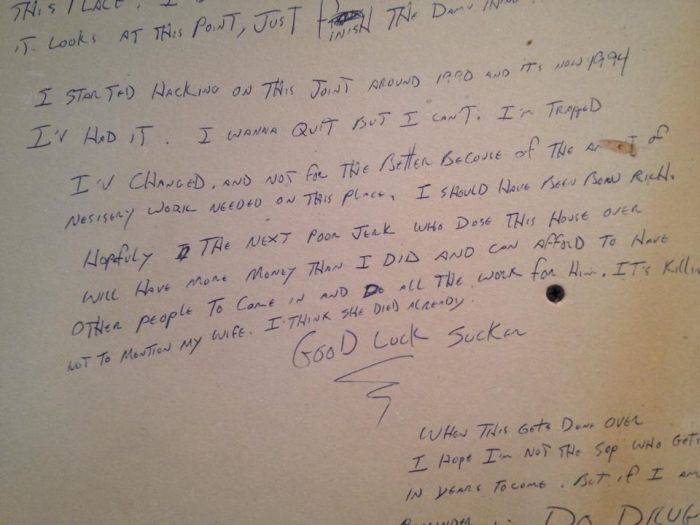 THIS PLACE. I
IT LOOKS AT THIS POINT, JUST FINISH THE DAMN
I STARTED HACKING ON THIS JOINT AROUND 1990 AND IT'S NOW 1994
I'V HAD IT. I WANNA QUIT BUT I CAN'T. I'M TRAPPED
I'V CHANGED, AND NOT FOR THE BETTER BECOUSE OF THE OF
NESISERY WORK NEEDED ON THIS PLACE, I SHOULD HAVE BEEN BORN RICH.
HOPEFULY THE NEXT POOR JERK WHO DOSE THIS HOUSE OVER
WILL HAVE MORE MONEY THAN I DID AND CAN AFFORD TO HAVE
OTHER PEOPLE TO COME IN AND DO ALL THE WORK FOR HIM. IT'S
NOT TO MENTION MY WIFE. I THINK SHE DIED ALREADY.
GOOD LUCK SUCKER
WHEN THIS GETS DONE OVER
I HOPE I'M NOT THE SOP WHO
IN YEARS TO COME. BUT IF I AM
DO